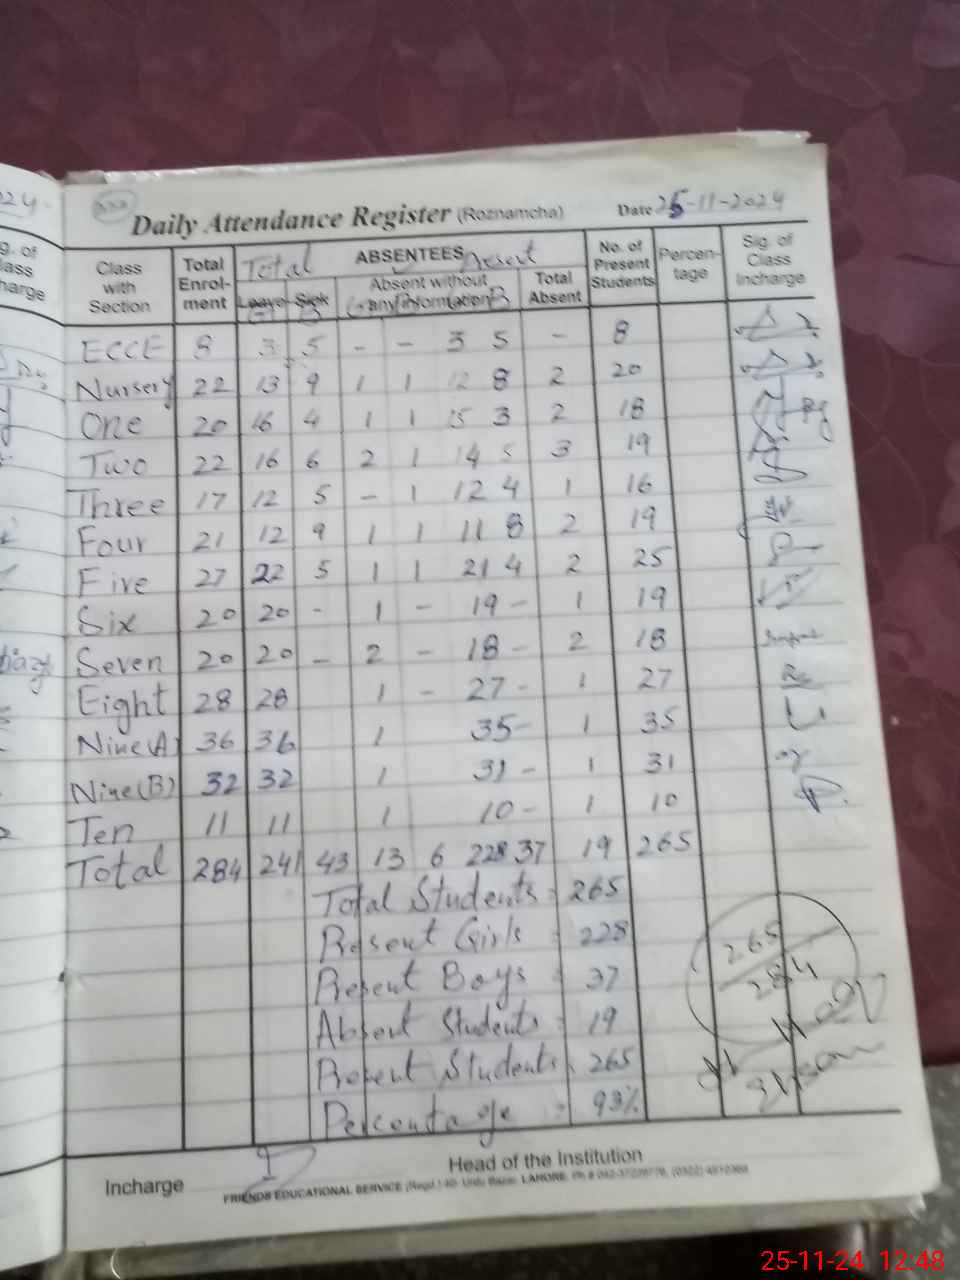 024
Daily Attendance Register (Roznamcha) Date 25-11-2024
g. of
lass
harge
Class with Section Total Enrol-ment Total ABSENTEES Present No. of Present Students Percen-tage Sig. of Class Incharge
Leave Sick Absent without any information Total Absent
G B G B G B
ECCE 8 3 5 - - 3 5 - 8
Nursery 22 13 9 1 1 12 8 2 20
One 20 16 4 1 1 15 3 2 18
Two 22 16 6 2 1 14 5 3 19
Three 17 12 5 - 1 12 4 1 16
Four 21 12 9 1 1 11 8 2 19
Five 27 22 5 1 1 21 4 2 25
Six 20 20 - 1 - 19 - 1 19
Seven 20 20 - 2 - 18 - 2 18
Eight 28 28 1 - 27 - 1 27
Nine(A) 36 36 1 35 - 1 35
Nine(B) 32 32 1 31 - 1 31
Ten 11 11 1 10 - 1 10
Total 284 241 43 13 6 228 37 19 265
Total Students = 265
Present Girls = 228
Present Boys = 37
Absent Students = 19
Present Students = 265
Percentage = 93%
265
284
Incharge Head of the Institution
FRIENDS EDUCATIONAL SERVICE Urdu Bazar LAHORE.
25-11-24 12:48